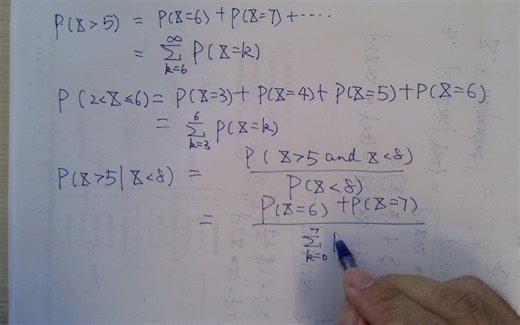 P(X>5) = P(X=6) + P(X=7) + ....
= ∑_{k=6}^{∞} P(X=k)
P(2<X≤6) = P(X=3) + P(X=4) + P(X=5) + P(X=6)
= ∑_{k=3}^{6} P(X=k)
P(X>5 | X<8) = P(X>5 and X<8) / P(X<8)
= P(X=6) + P(X=7) / ∑_{k=0}^{7}